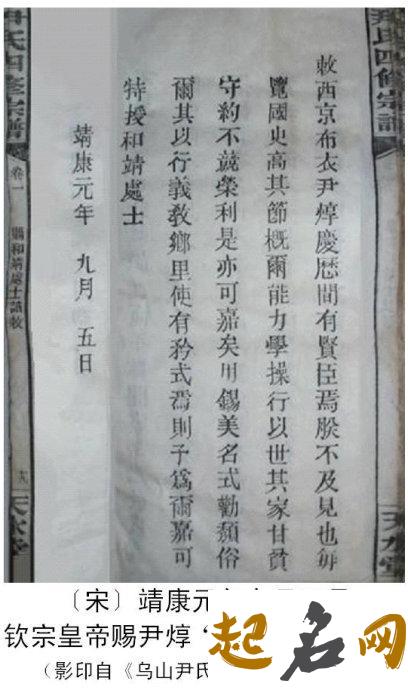 尹氏四修宗譜
天水堂
敕西京布衣尹焞慶歷間有賢臣焉朕不及見也每
覽國史高其節概爾能力學操行以世其家甘貧
守約不競榮利是亦可嘉矣用錫美名式勸頹俗
爾其以行義敎鄉里使有矜式焉則予爲爾嘉可
特授和靖處士
靖康元年 九月 五日
尹氏四修宗譜
卷一
賜和靖處士誥敕
十九
天水堂
〔宋〕靖康元
钦宗皇帝赐尹焞“
（影印自《乌山尹氏
起名网